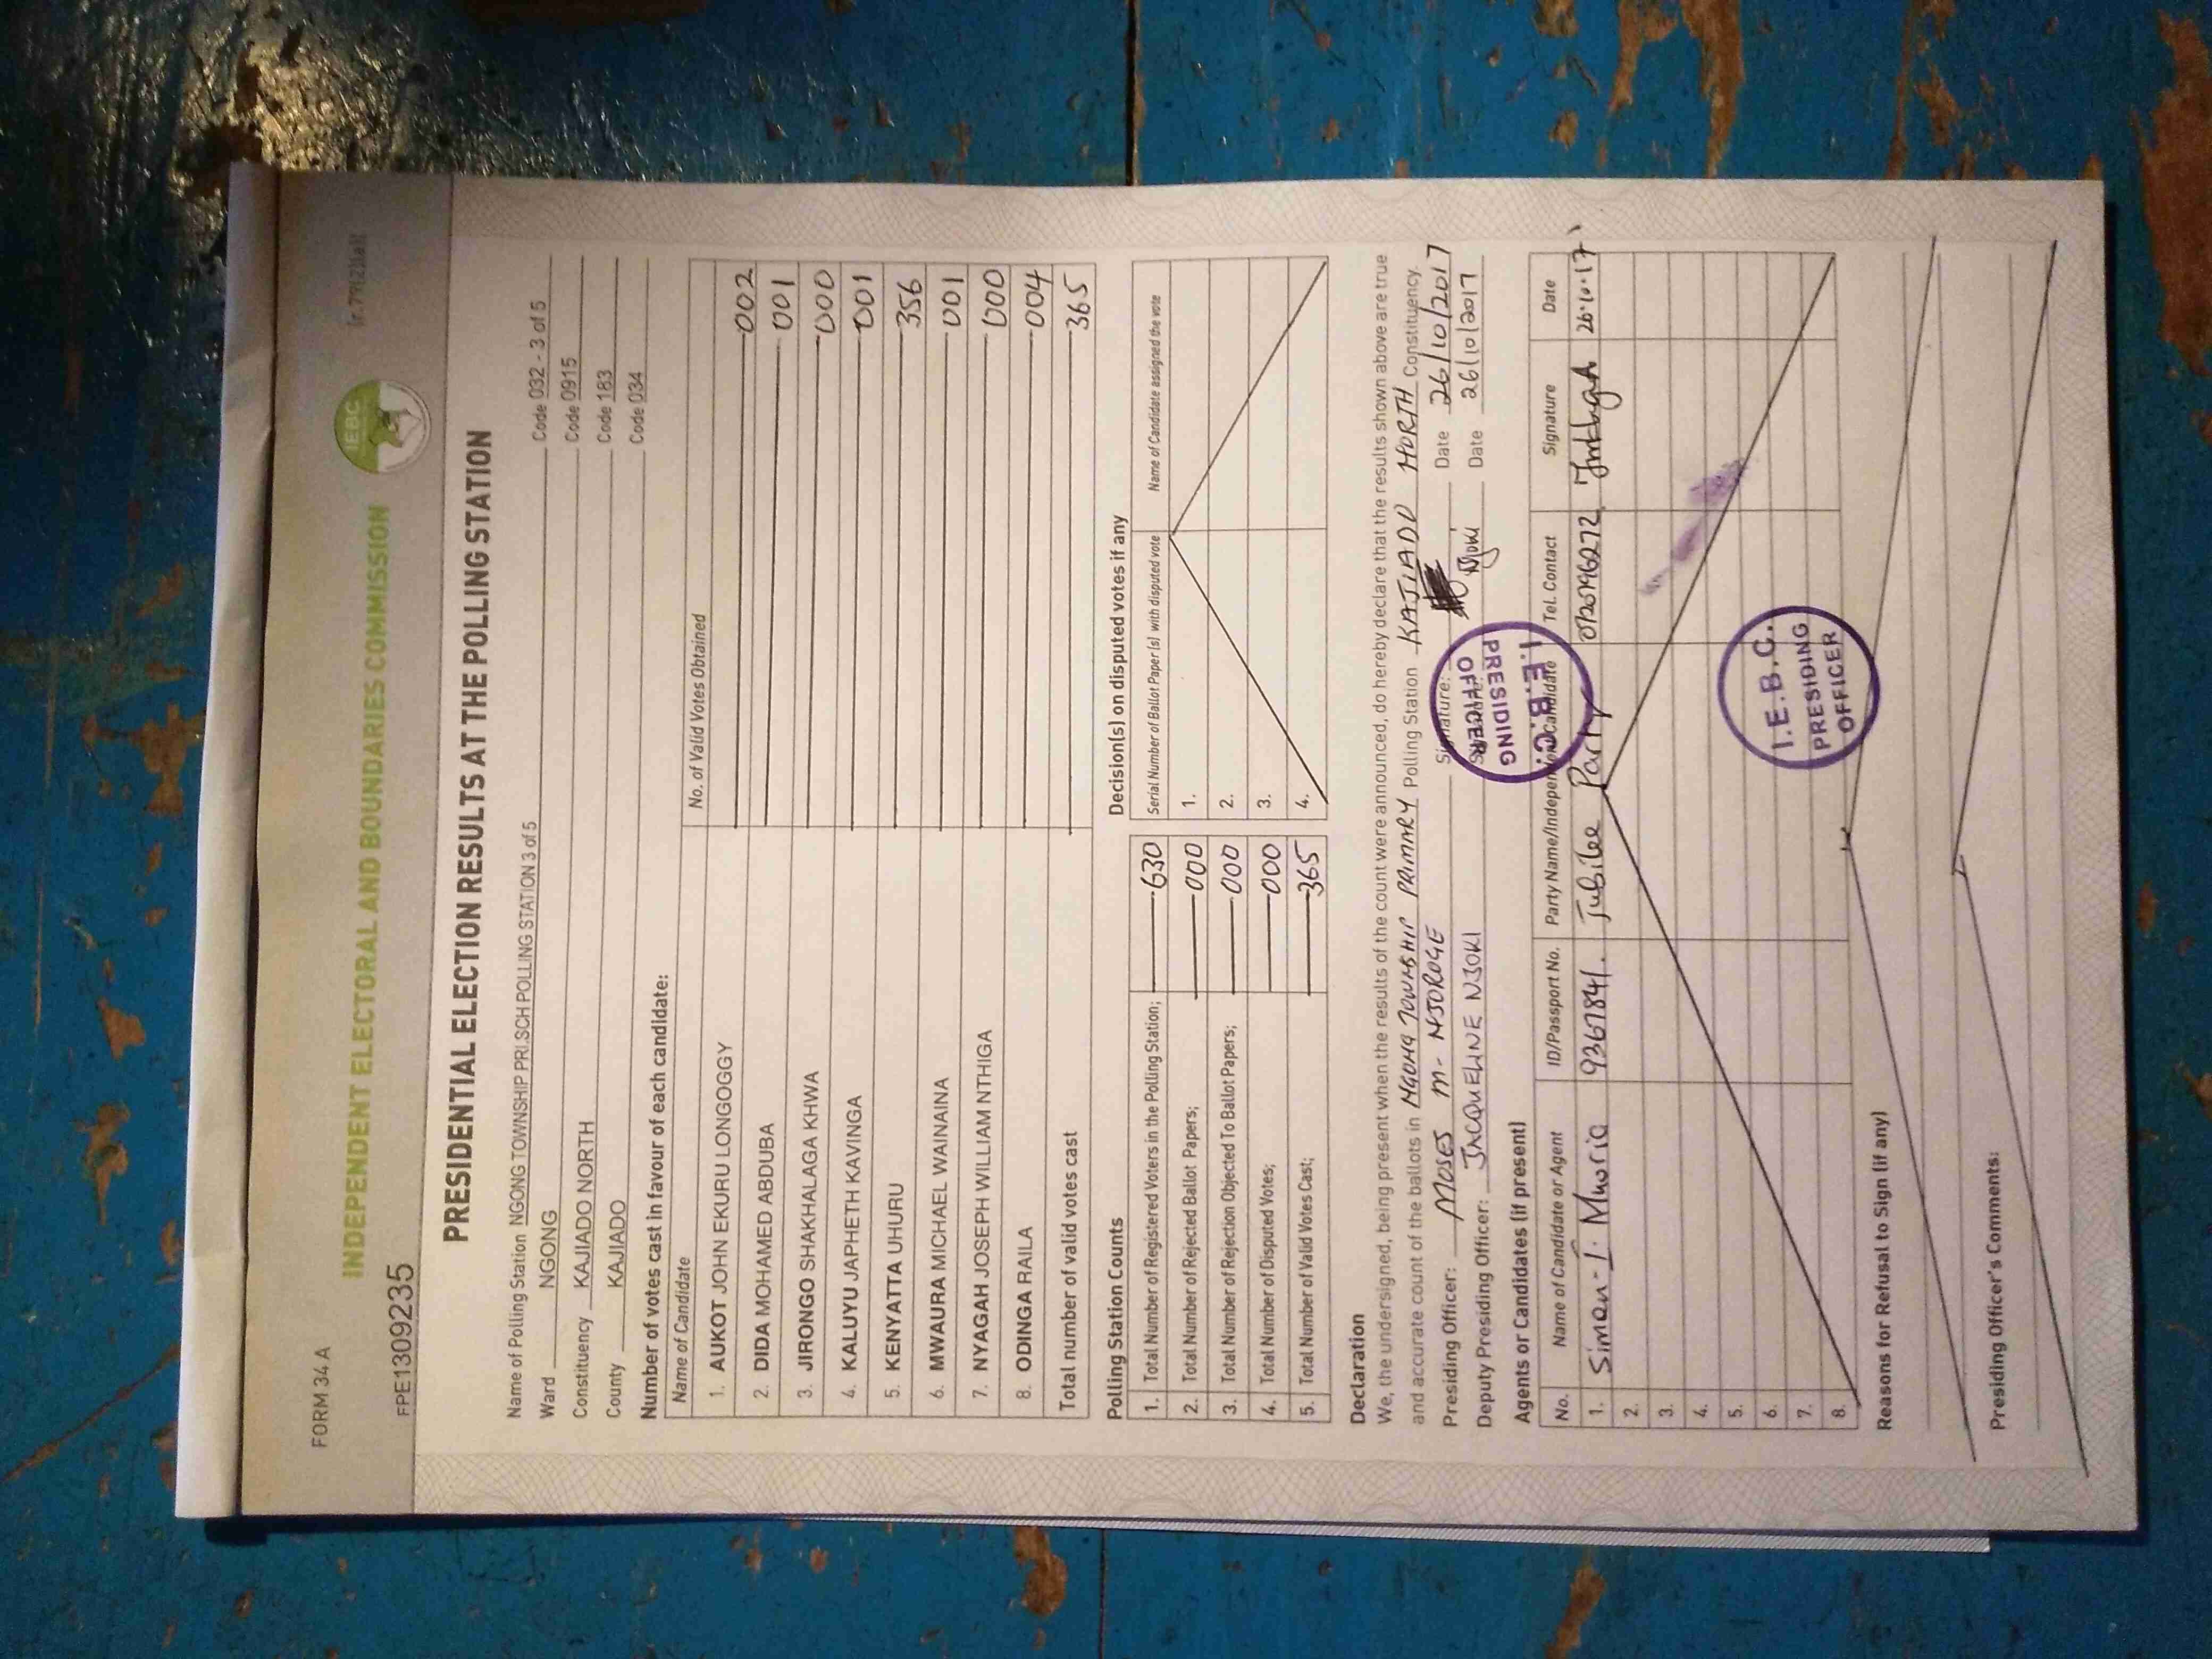 FORM 34 A
(r.79(2)(a))
IEBC
INDEPENDENT ELECTORAL AND BOUNDARIES COMMISSION
FPE1309235
PRESIDENTIAL ELECTION RESULTS AT THE POLLING STATION
Name of Polling Station NGONG TOWNSHIP PRI.SCH POLLING STATION 3 of 5 Code 032 - 3 of 5
Ward NGONG Code 0915
Constituency KAJIADO NORTH Code 183
County KAJIADO Code 034
Number of votes cast in favour of each candidate:
Name of Candidate No. of Valid Votes Obtained
1. AUKOT JOHN EKURU LONGOGGY 002
2. DIDA MOHAMED ABDUBA 001
3. JIRONGO SHAKHALAGA KHWA 000
4. KALUYU JAPHETH KAVINGA 001
5. KENYATTA UHURU 356
6. MWAURA MICHAEL WAINAINA 001
7. NYAGAH JOSEPH WILLIAM NTHIGA 000
8. ODINGA RAILA 004
Total number of valid votes cast 365
Polling Station Counts
1. Total Number of Registered Voters in the Polling Station; 630
2. Total Number of Rejected Ballot Papers; 000
3. Total Number of Rejection Objected To Ballot Papers; 000
4. Total Number of Disputed Votes; 000
5. Total Number of Valid Votes Cast; 365
Decision(s) on disputed votes if any
Serial Number of Ballot Paper (s) with disputed vote Name of Candidate assigned the vote
1.
2.
3.
4.
Declaration
We, the undersigned, being present when the results of the count were announced, do hereby declare that the results shown above are true
and accurate count of the ballots in NGONG TOWNSHIP PRIMARY Polling Station KAJIADO NORTH Constituency.
Presiding Officer: MOSES M. NJOROGE Signature: Date 26/10/2017
Deputy Presiding Officer: JACQUELINE NJOKI Njoki Date 26/10/2017
I.E.B.C.
PRESIDING
OFFICER
Agents or Candidates (if present)
No. Name of Candidate or Agent ID/Passport No. Party Name/Independent Candidate Tel. Contact Signature Date
1. Simon I. Mworia 9367841. Jubilee Party 0720796272 26.10.17
2.
3.
4.
5.
6.
7.
8.
I.E.B.C.
PRESIDING
OFFICER
Reasons for Refusal to Sign (if any)
Presiding Officer's Comments: